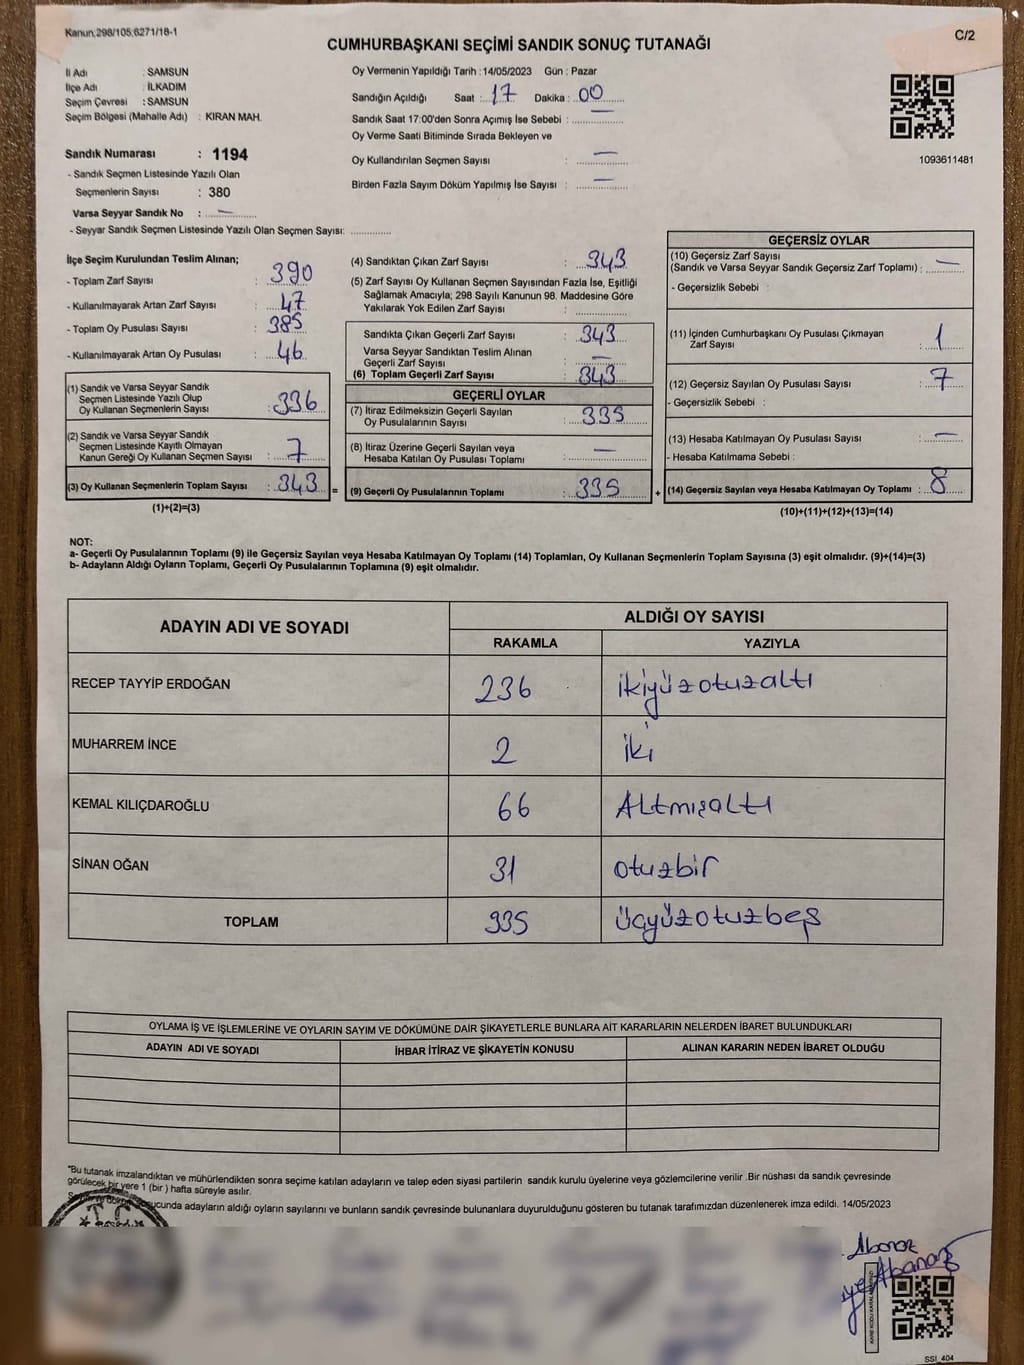 Kanun,298/105,6271/18-1
C/2
CUMHURBAŞKANI SEÇİMİ SANDIK SONUÇ TUTANAĞI
İl Adı : SAMSUN
İlçe Adı : İLKADIM
Seçim Çevresi : SAMSUN
Seçim Bölgesi (Mahalle Adı) : KIRAN MAH.
Sandık Numarası : 1194
- Sandık Seçmen Listesinde Yazılı Olan
Seçmenlerin Sayısı : 380
Varsa Seyyar Sandık No : —
- Seyyar Sandık Seçmen Listesinde Yazılı Olan Seçmen Sayısı: ..............
Oy Vermenin Yapıldığı Tarih : 14/05/2023 Gün : Pazar
Sandığın Açıldığı Saat : 17 Dakika : 00
Sandık Saat 17:00'den Sonra Açımış İse Sebebi : —
Oy Verme Saati Bitiminde Sırada Bekleyen ve
Oy Kullandırılan Seçmen Sayısı : —
Birden Fazla Sayım Döküm Yapılmış İse Sayısı : —
1093611481
İlçe Seçim Kurulundan Teslim Alınan;
- Toplam Zarf Sayısı : 390
- Kullanılmayarak Artan Zarf Sayısı : 47
- Toplam Oy Pusulası Sayısı : 385
- Kullanılmayarak Artan Oy Pusulası : 46
(1) Sandık ve Varsa Seyyar Sandık
Seçmen Listesinde Yazılı Olup
Oy Kullanan Seçmenlerin Sayısı : 336
(2) Sandık ve Varsa Seyyar Sandık
Seçmen Listesinde Kayıtlı Olmayan
Kanun Gereği Oy Kullanan Seçmen Sayısı : 7
(3) Oy Kullanan Seçmenlerin Toplam Sayısı : 343 =
(1)+(2)=(3)
(4) Sandıktan Çıkan Zarf Sayısı : 343
(5) Zarf Sayısı Oy Kullanan Seçmen Sayısından Fazla İse, Eşitliği
Sağlamak Amacıyla; 298 Sayılı Kanunun 98. Maddesine Göre
Yakılarak Yok Edilen Zarf Sayısı : ..............
Sandıkta Çıkan Geçerli Zarf Sayısı : 343
Varsa Seyyar Sandıktan Teslim Alınan
Geçerli Zarf Sayısı : —
(6) Toplam Geçerli Zarf Sayısı : 343
GEÇERLİ OYLAR
(7) İtiraz Edilmeksizin Geçerli Sayılan
Oy Pusulalarının Sayısı : 335
(8) İtiraz Üzerine Geçerli Sayılan veya
Hesaba Katılan Oy Pusulası Toplamı : —
(9) Geçerli Oy Pusulalarının Toplamı : 335 +
GEÇERSİZ OYLAR
(10) Geçersiz Zarf Sayısı
(Sandık ve Varsa Seyyar Sandık Geçersiz Zarf Toplamı) : —
- Geçersizlik Sebebi :
(11) İçinden Cumhurbaşkanı Oy Pusulası Çıkmayan
Zarf Sayısı : 1
(12) Geçersiz Sayılan Oy Pusulası Sayısı : 7
- Geçersizlik Sebebi :
(13) Hesaba Katılmayan Oy Pusulası Sayısı : —
- Hesaba Katılmama Sebebi :
(14) Geçersiz Sayılan veya Hesaba Katılmayan Oy Toplamı : 8
(10)+(11)+(12)+(13)=(14)
NOT:
a- Geçerli Oy Pusulalarının Toplamı (9) ile Geçersiz Sayılan veya Hesaba Katılmayan Oy Toplamı (14) Toplamları, Oy Kullanan Seçmenlerin Toplam Sayısına (3) eşit olmalıdır. (9)+(14)=(3)
b- Adayların Aldığı Oyların Toplamı, Geçerli Oy Pusulalarının Toplamına (9) eşit olmalıdır.
ADAYIN ADI VE SOYADI
ALDIĞI OY SAYISI
RAKAMLA YAZIYLA
RECEP TAYYİP ERDOĞAN 236 ikiyüzotuzaltı
MUHARREM İNCE 2 iki
KEMAL KILIÇDAROĞLU 66 Altmışaltı
SİNAN OĞAN 31 otuzbir
TOPLAM 335 üçyüzotuzbeş
OYLAMA İŞ VE İŞLEMLERİNE VE OYLARIN SAYIM VE DÖKÜMÜNE DAİR ŞİKAYETLERLE BUNLARA AİT KARARLARIN NELERDEN İBARET BULUNDUKLARI
ADAYIN ADI VE SOYADI İHBAR İTİRAZ VE ŞİKAYETİN KONUSU ALINAN KARARIN NEDEN İBARET OLDUĞU
*Bu tutanak imzalandıktan ve mühürlendikten sonra seçime katılan adayların ve talep eden siyasi partilerin sandık kurulu üyelerine veya gözlemcilerine verilir .Bir nüshası da sandık çevresinde
görülecek bir yere 1 (bir ) hafta süreyle asılır.
adayların aldığı oyların sayılarını ve bunların sandık çevresinde bulunanlara duyurulduğunu gösteren bu tutanak tarafımızdan düzenlenerek imza edildi. 14/05/2023
T.C.
SSI_404